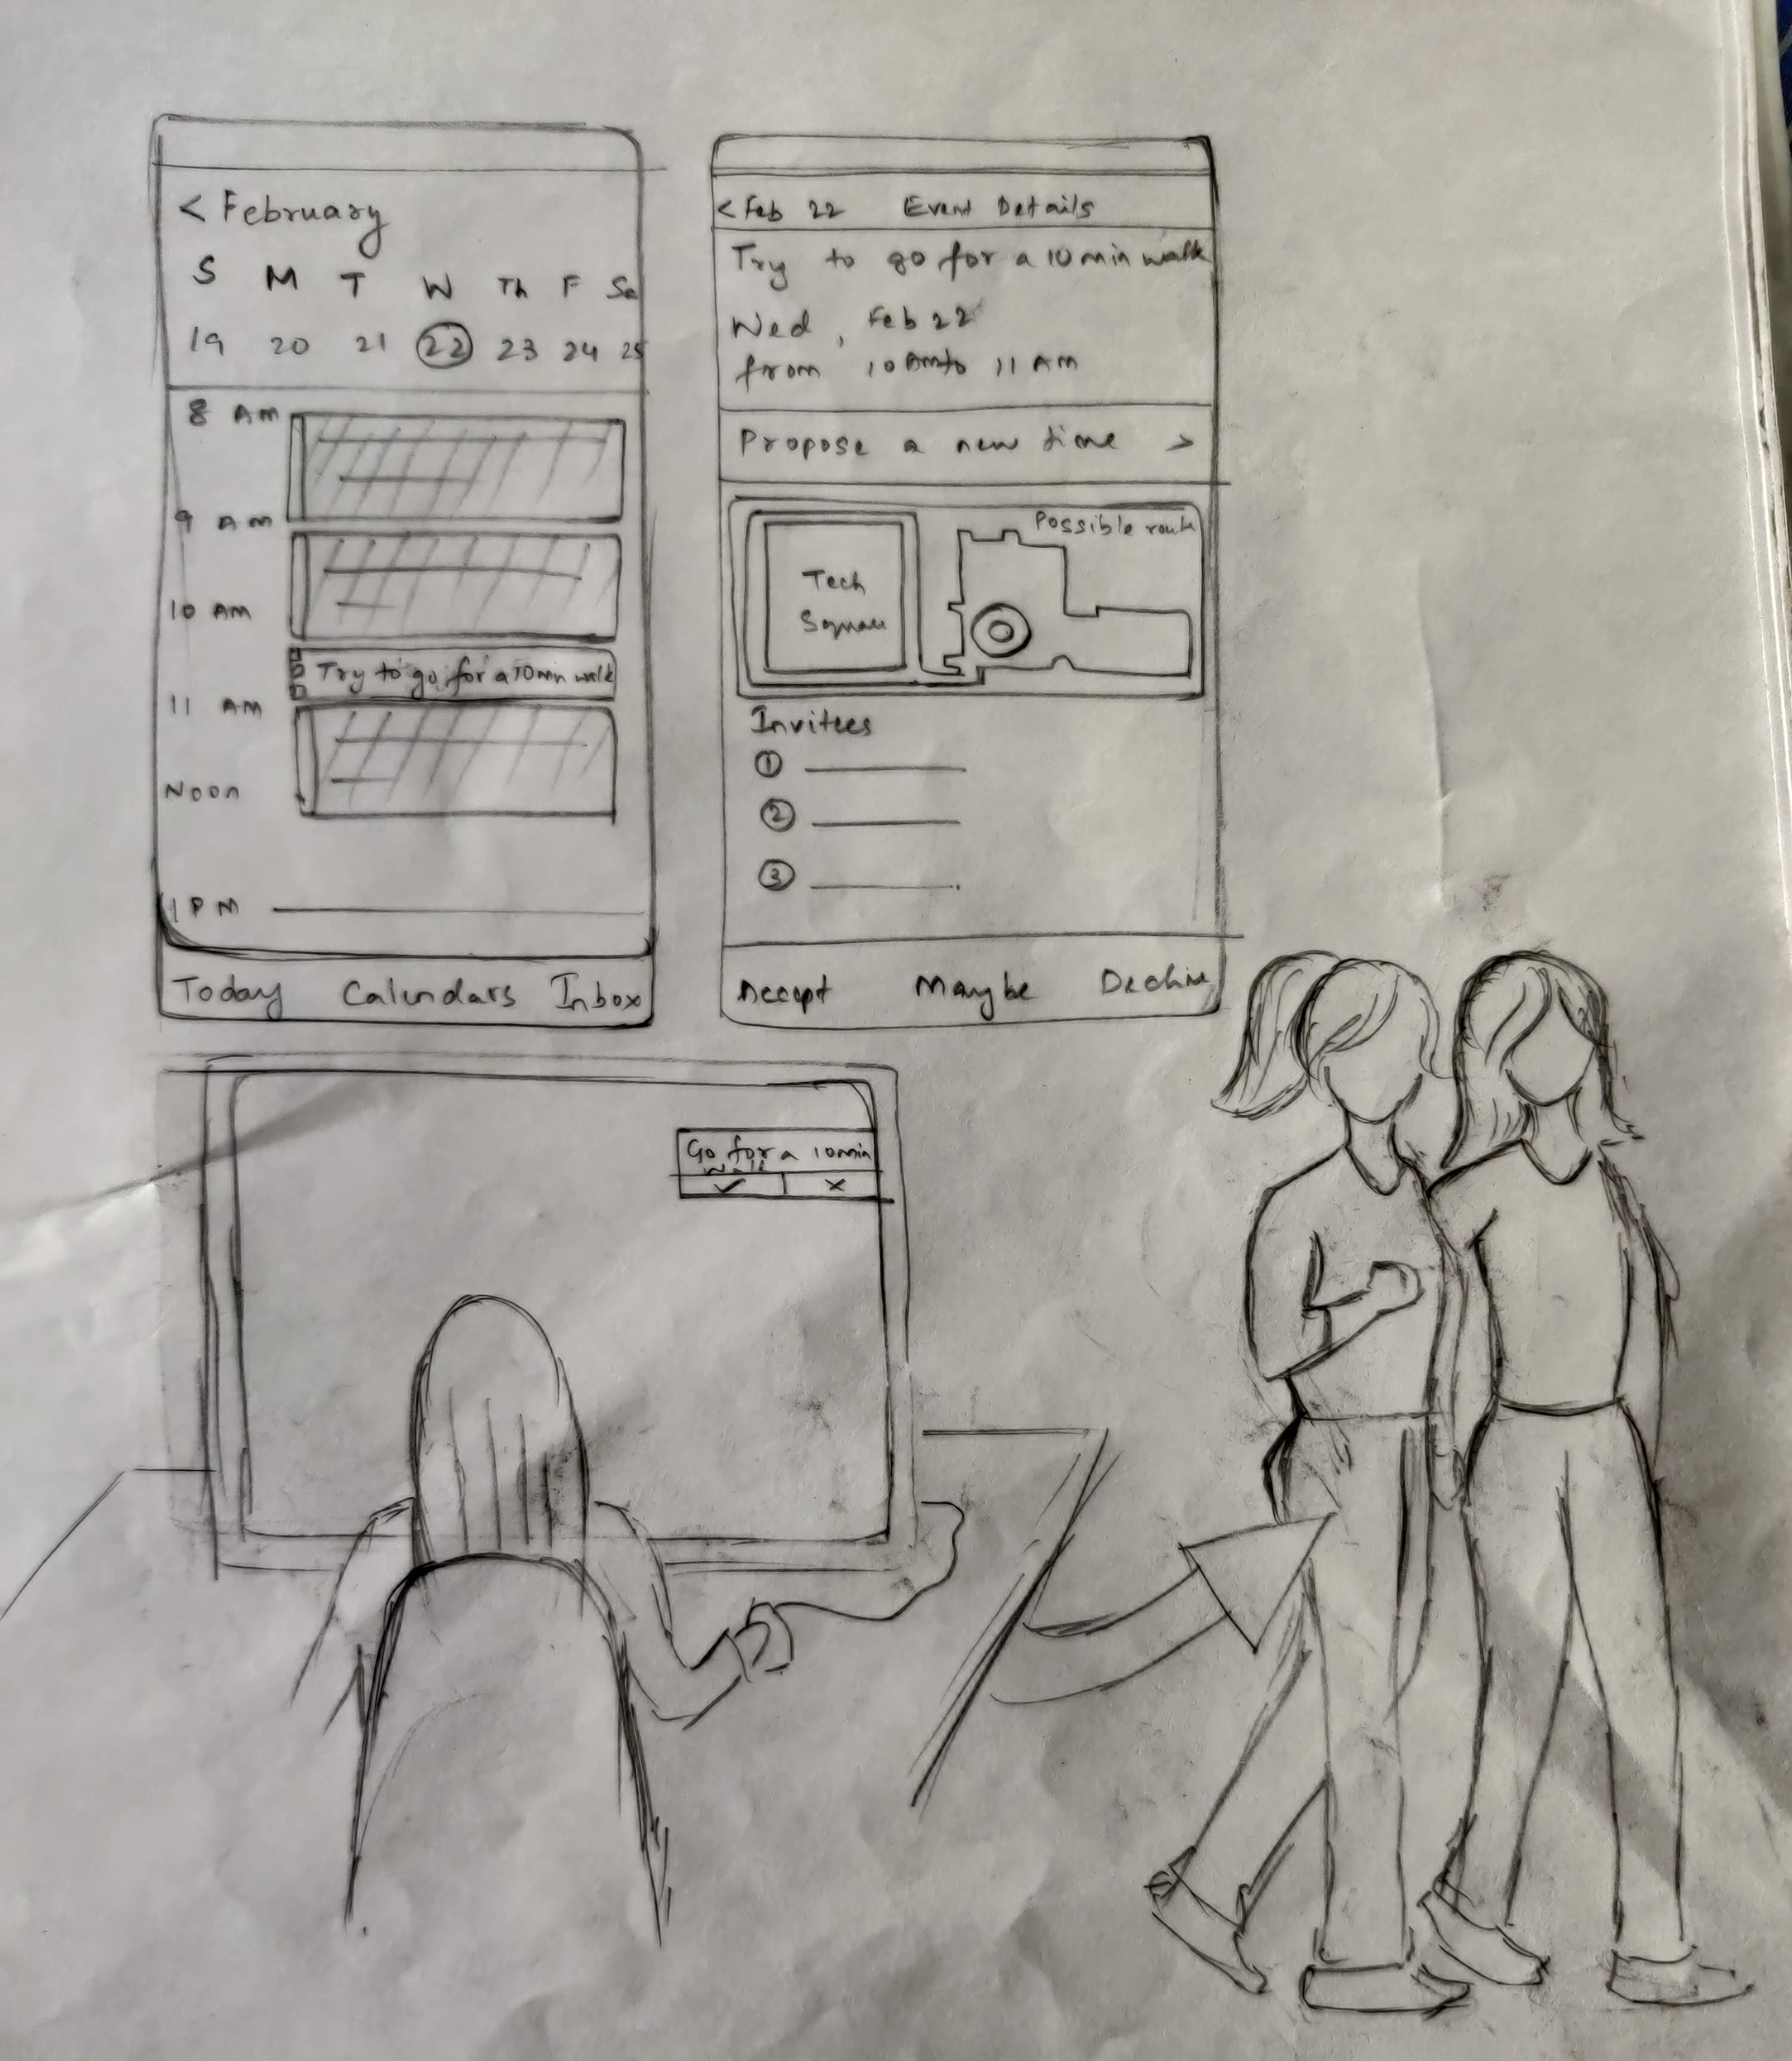 < February
S M T W Th F Sa
19 20 21 22 23 24 25
8 AM
9 AM
10 AM
Try to go for a 10 min walk
11 AM
Noon
1 PM
Today Calendars Inbox
< Feb 22 Event Details
Try to go for a 10 min walk
Wed, Feb 22
from 10 AM to 11 AM
Propose a new time >
Possible route
Tech
Square
Invitees
1
2
3
Accept Maybe Decline
Go for a 10 min
walk
✓ ×